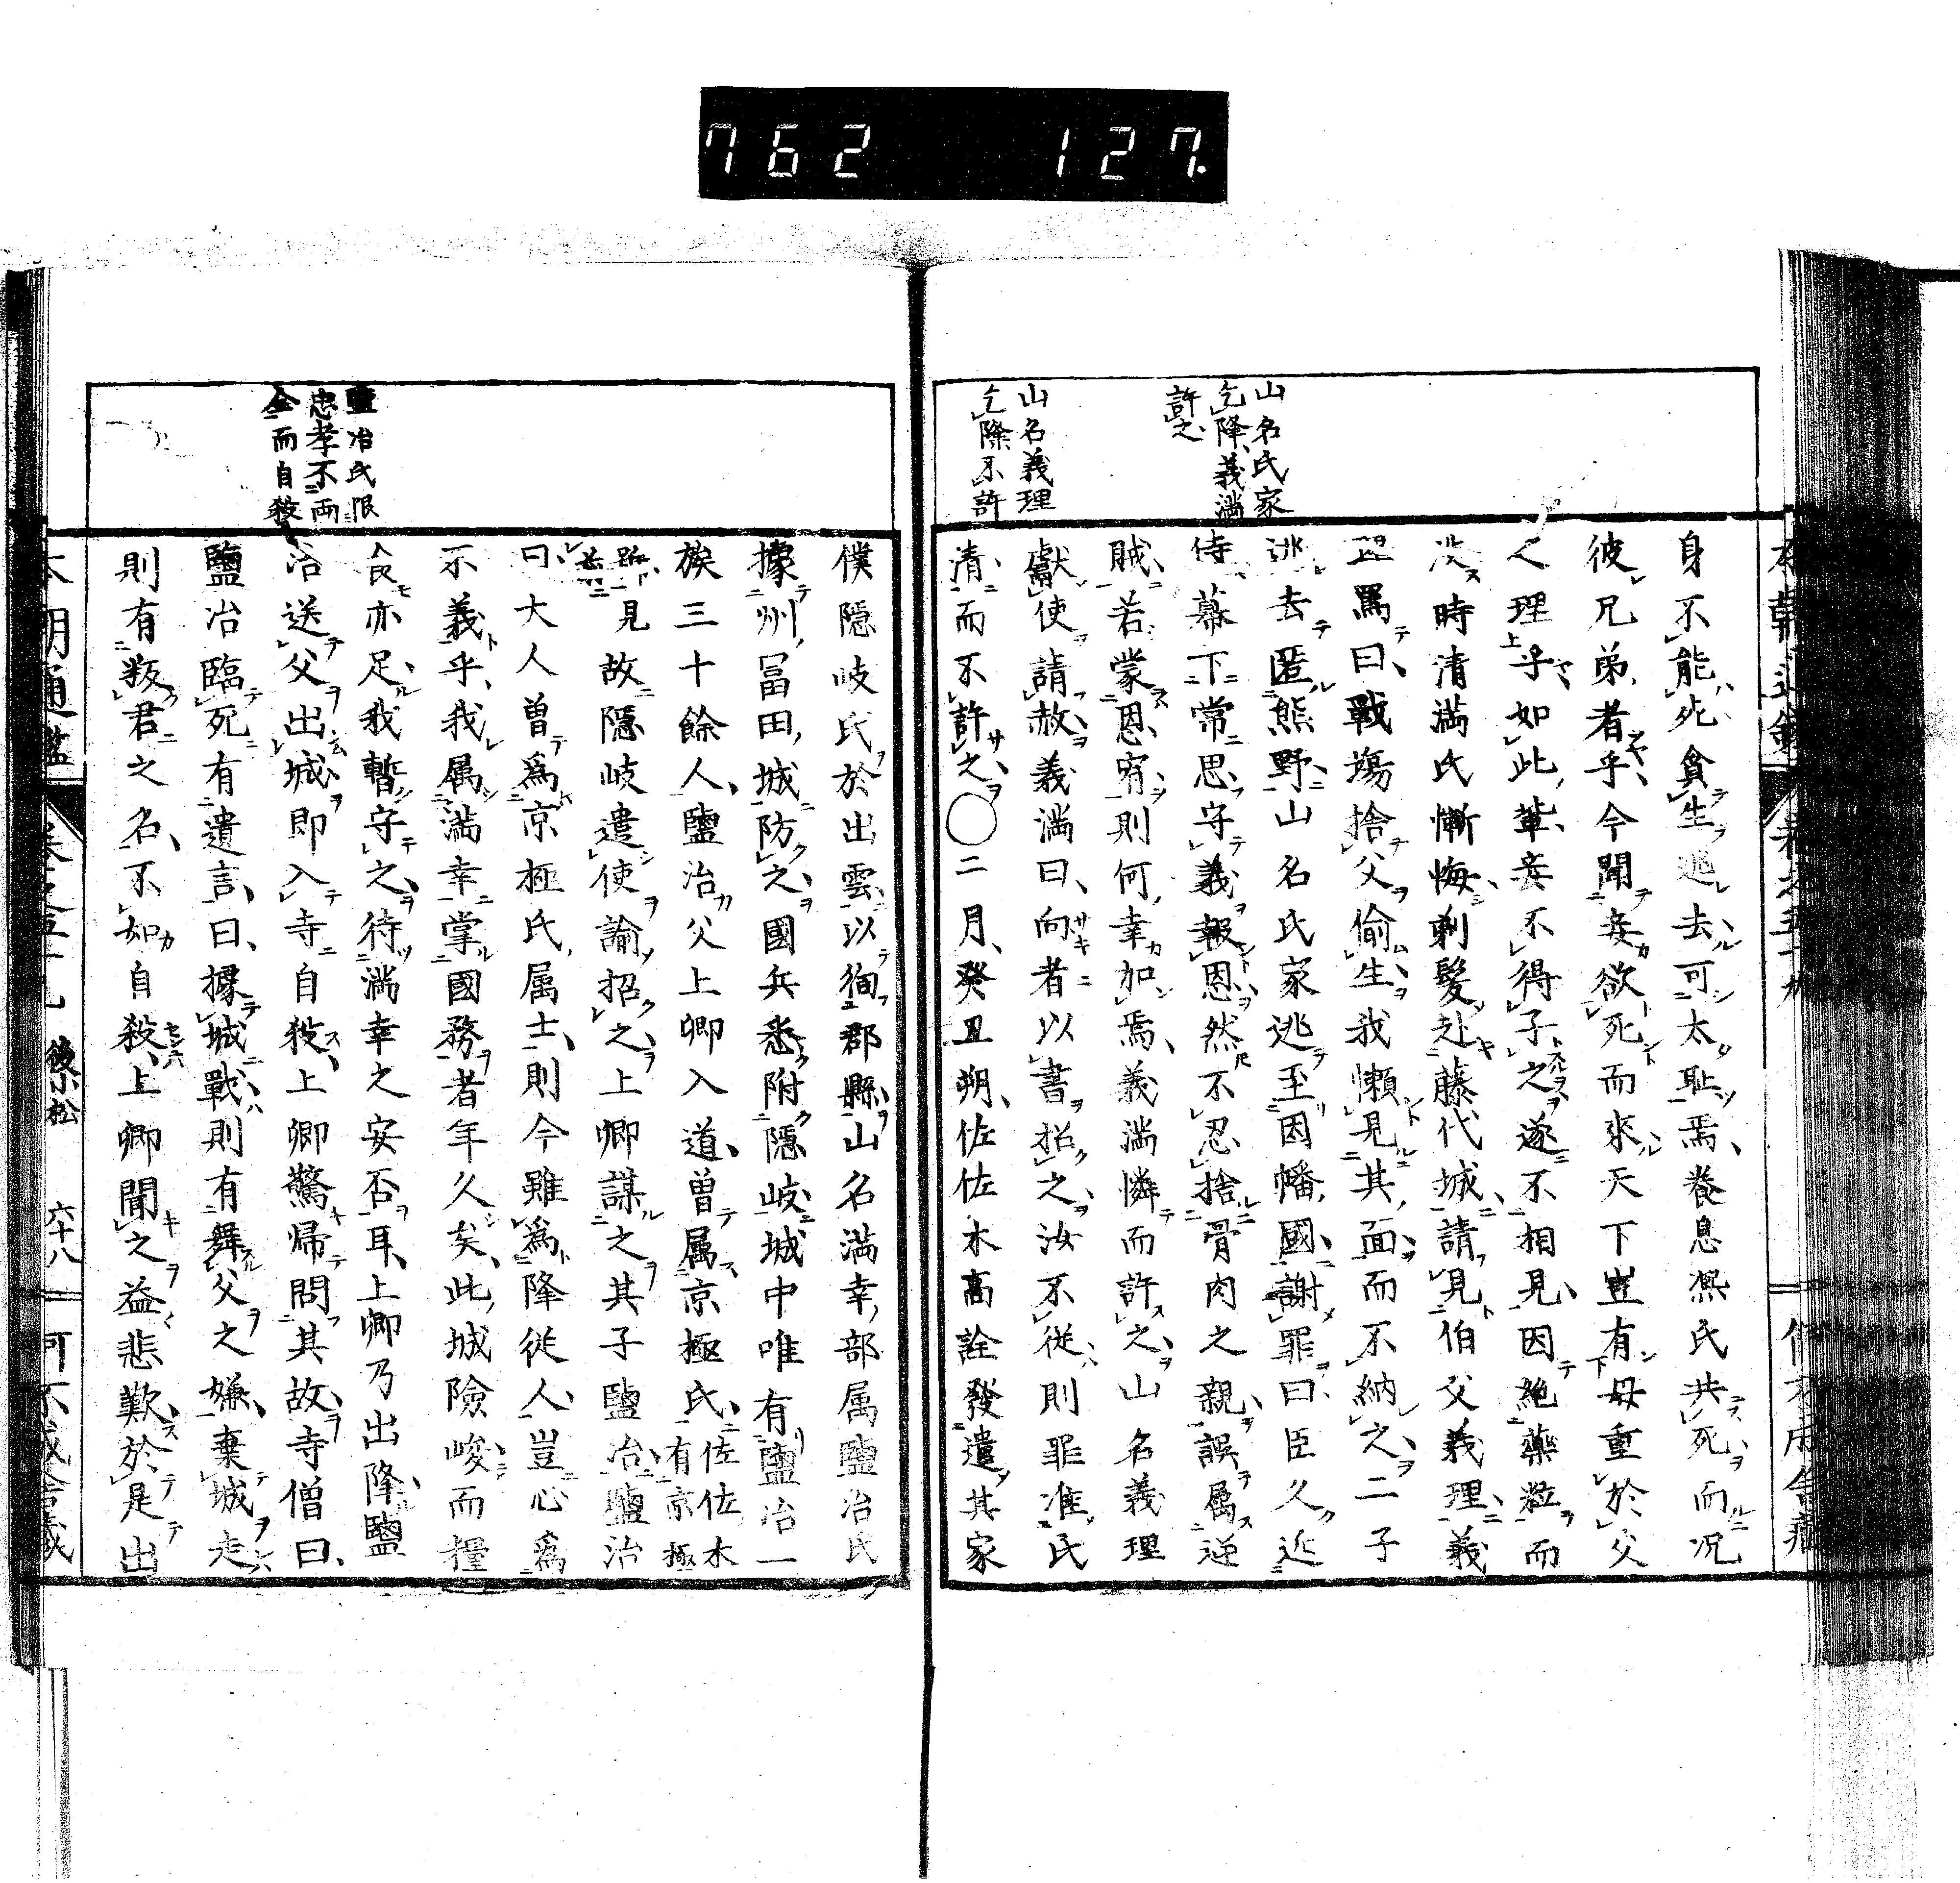 762 127.
山名氏家
乞降、義満
許之、
山名義理
乞降不許
身不能死貪生逃去可太耻焉、養息熙氏共死而况
彼兄弟者乎、今聞妾欲死而來天下豈有母重於父
人理乎、如此輩妾不得子之遂不相見、因絶藥粒而
没時清満氏慚悔剃髮赴藤代城請見伯父義理義
理罵曰、戰塲捨父偷生我懶見其面而不納之、二子
逃去匿熊野山名氏家逃至因幡國謝罪曰臣久近
侍幕下常思守義報恩然不忍捨骨肉之親誤属逆
賊若蒙恩宥則何幸加焉、義満憐而許之、山名義理
獻使請赦義満曰、向者以書招之、汝不従則罪准氏
清而不許之、〇二月、癸丑朔、佐佐木高詮發遣其家
鹽冶氏限
忠孝不両
全而自殺
僕隱岐氏於出雲以徇郡縣山名満幸部属鹽冶氏
據州冨田城防之國兵悉附隱岐城中唯有鹽冶一
族三十餘人、鹽冶父上卿入道、曽属京極氏、佐佐木
有京極
見故隱岐遣使諭招之上卿謀之其子鹽冶、鹽冶
曰、大人曽爲京極氏属士、則今雖爲降従人、豈心爲
不義乎、我属満幸掌國務者年久矣、此城險峻而糧
食亦足我暫守之待満幸之安否耳、上卿乃出降鹽
冶送父出城即入寺自殺、上卿驚帰問其故寺僧曰、
鹽冶臨死有遺言、曰、據城戰則有舞父之嫌、棄城走
則有叛君之名、不如自殺、上卿聞之益悲歎於是出
後小松 六十八